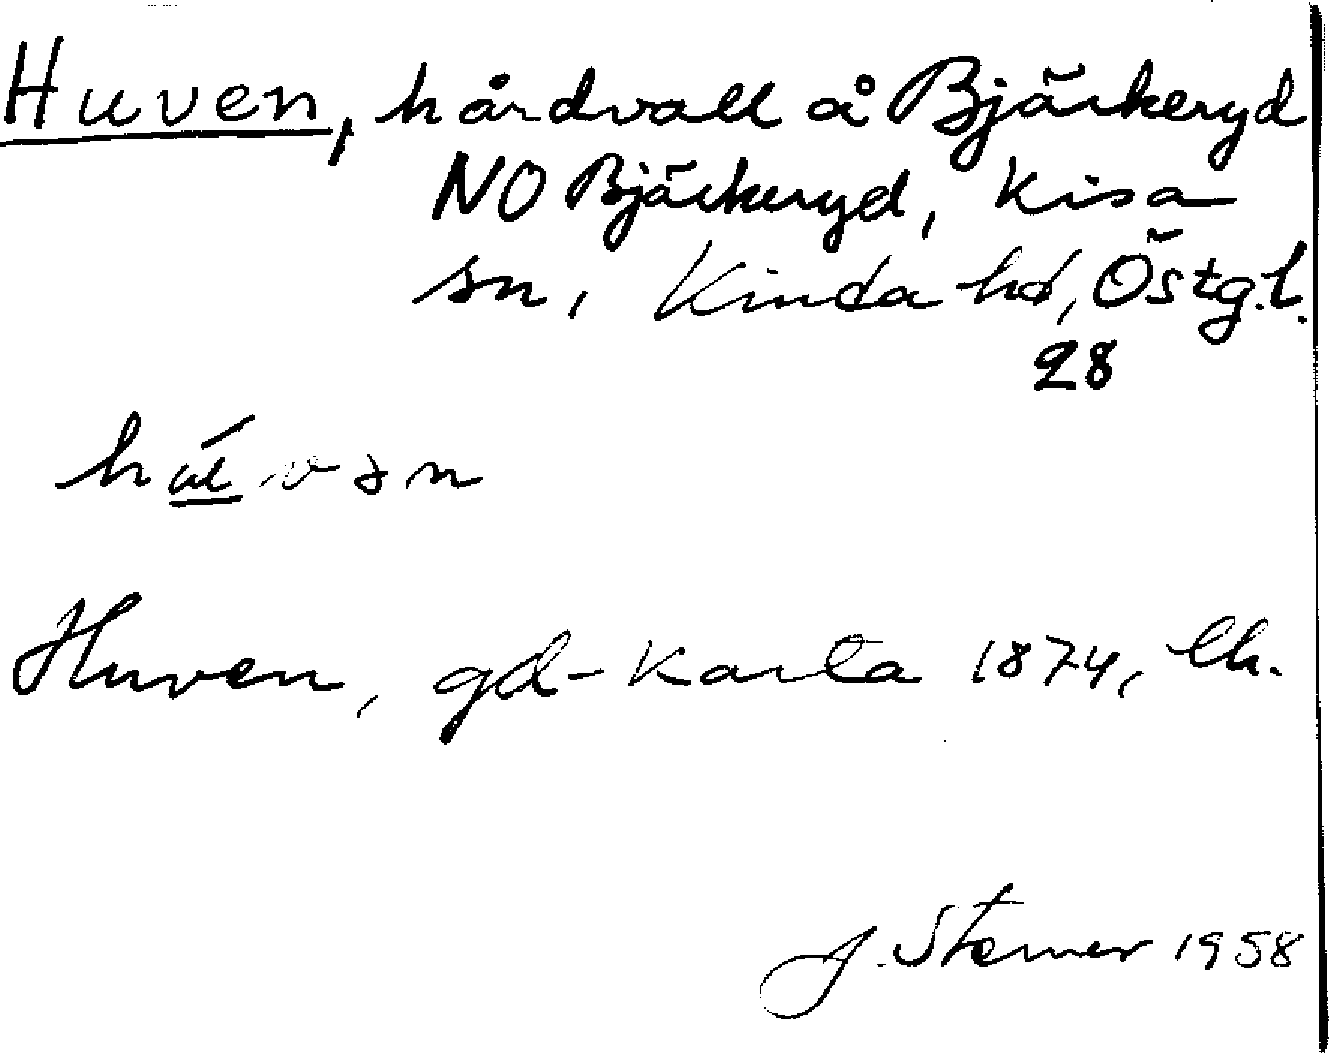 Huven, hårdvall å Bjärkeryd
NO Bjärkeryd, Kisa
sn, Kinda hd, Östg.l.
28
húvən
Huven, gd-karta 1874, lk.
J. Sterner 1958